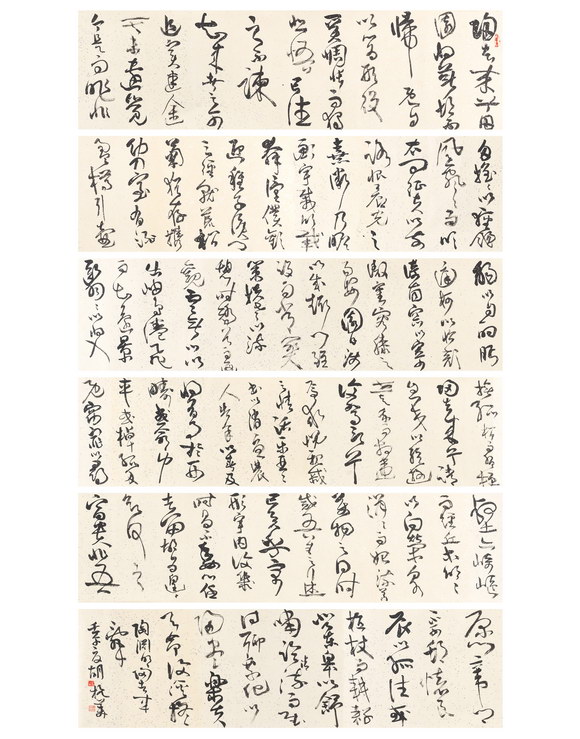 歸去來兮田
園將蕪胡不
歸既自
以心為形役
奚惆悵而獨
悲悟已往
之不諫
知來者之可
追實迷途
其未遠覺
今是而昨非
舟遙遙以輕颺
風飄飄而吹
衣問征夫以前
路恨晨光之
熹微乃瞻
衡宇載欣載
奔僮僕歡
迎稚子候門
三徑就荒松
菊猶存攜
幼入室有酒
盈樽引壺
觴以自酌眄
庭柯以怡顏
倚南窗以寄
傲審容膝之
易安園日涉
以成趣門雖
設而常關
策扶老以流
憩時矯首而遐
觀雲無心以
出岫鳥倦飛
而知還景
翳翳以將入
撫孤松而盤桓
歸去來兮請
息交以絕遊
世與我而相違
復駕言兮
焉求悅親戚
之情話樂琴
書以消憂農
人告余以春及
將有事於西
疇或命巾
車或棹孤舟
既窈窕以尋
壑亦崎嶇
而經丘木欣欣
以向榮泉
涓涓而始流善
萬物之得時
感吾生之行
休已矣乎寓
形宇內復幾
時曷不委心任
去留胡為遑遑
欲何之
富貴非吾
願帝鄉
不可期懷良
辰以孤往或
植杖而耘耔
登東皋以舒
嘯臨清流而賦
詩聊乘化以
歸盡樂夫
天命復奚疑
陶淵明歸去來
辭